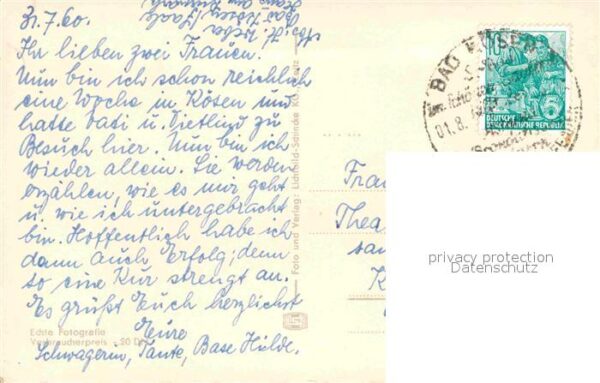 31.7.60.
Ihr lieben zwei Frauen.
Nun bin ich schon reichlich
eine Woche in Kösen und
hatte Vati u. Dietlind zu
Besuch hier. Nun bin ich
wieder allein. Sie werden
erzählen, wie es mir geht
u. wie ich untergebracht
bin. Hoffentlich habe ich
dann auch Erfolg; denn
so eine Kur strengt an.
Es grüßt Euch herzlichst
Eure
Schwägerin, Tante, Base Hilde.
Echte Fotografie
Verbraucherpreis -20 DM
Foto und Verlag: Lichtbild-
BAD KÖSEN
01.8.
10
DEUTSCHE
DEMOKRATISCHE REPUBLIK
Frau
Thea
privacy protection
Datenschutz